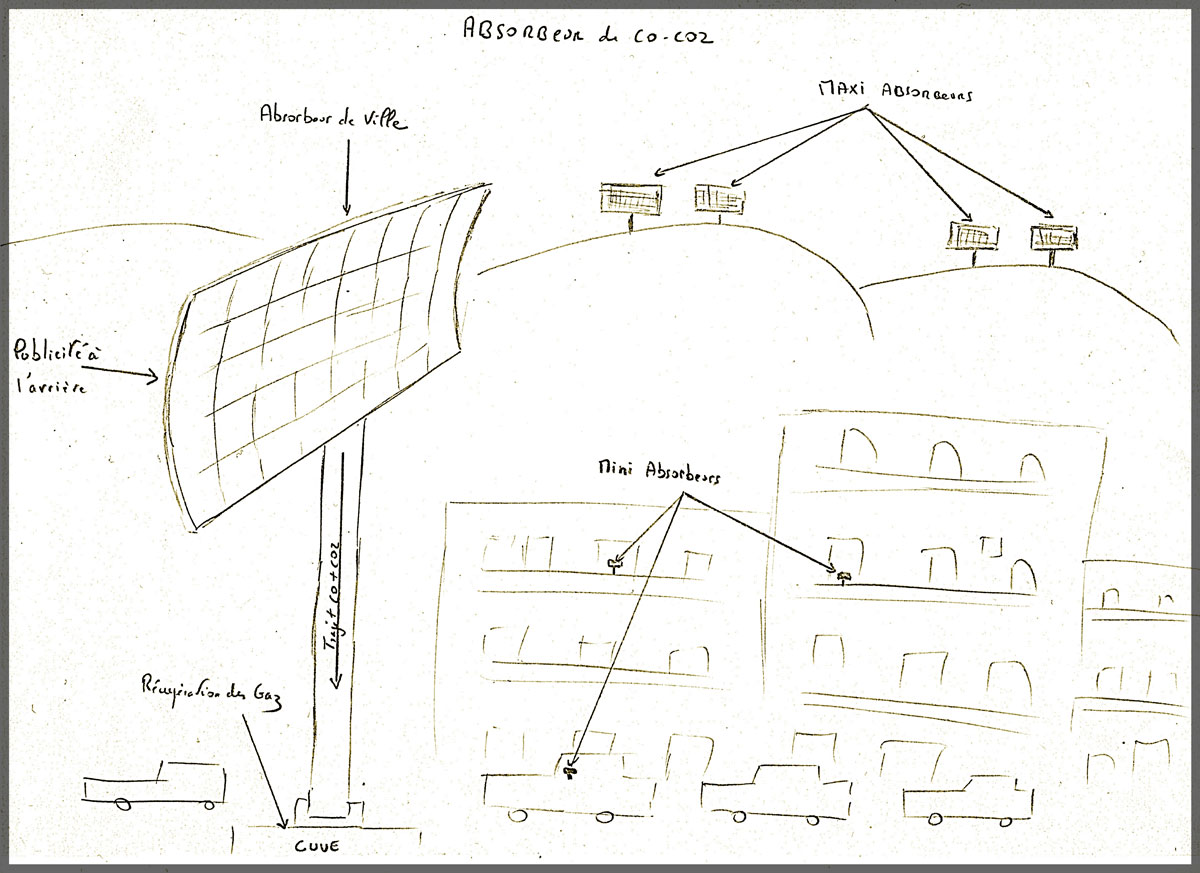 ABSORBEUR de CO-CO2
MAXI ABSORBEURS
Absorbeur de Ville
Publicité à
l'arrière
Mini Absorbeurs
Trajet CO+CO2
Récupération des Gaz
CUVE